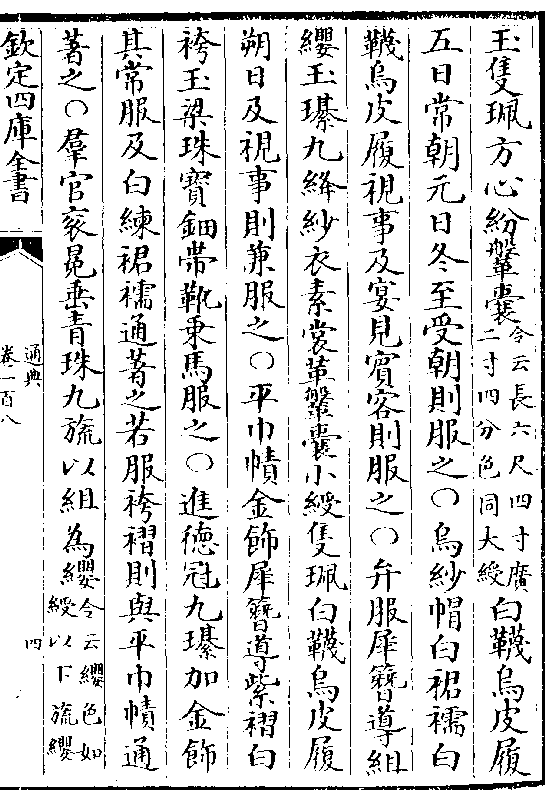 玉隻珮方心紛鞶囊令云長六尺四寸廣二寸四分色同大綬白韈烏皮履
五日常朝元日冬至受朝則服之○烏紗帽白裙襦白
韈烏皮履視事及宴見賓客則服之○弁服犀簪導組
纓玉璂九絳紗衣素裳革鞶囊小綬隻珮白韈烏皮履
朔日及視事則兼服之○平巾幘金飾犀簪導紫褶白
袴玉梁珠寳鈿帶靴乘馬服之○進徳冠九璂加金飾
其常服及白練裙襦通著之若服袴褶則與平巾幘通
著之○羣官衮冕垂青珠九旒以組為纓令云纓色如綬以下旒纓
欽定四庫全書
通典
卷一百八
四